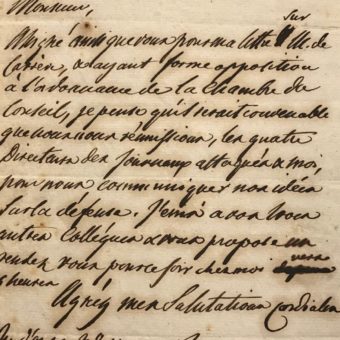 Monsieur,
sur
ainsi que vous pour ma lettre M. de
ayant formé opposition
à l'ordonnance de la Chambre du
Conseil, je pense qu'il serait convenable
que nous nous réunissions, les quatre
Directeurs des journaux attaqués & moi,
pour nous communiquer nos idées
sur la défense. J'écris à vos trois
autres Collègues & vous propose un
rendez vous pour ce soir chez moi vers
heures
Agréez mes Salutations cordiales